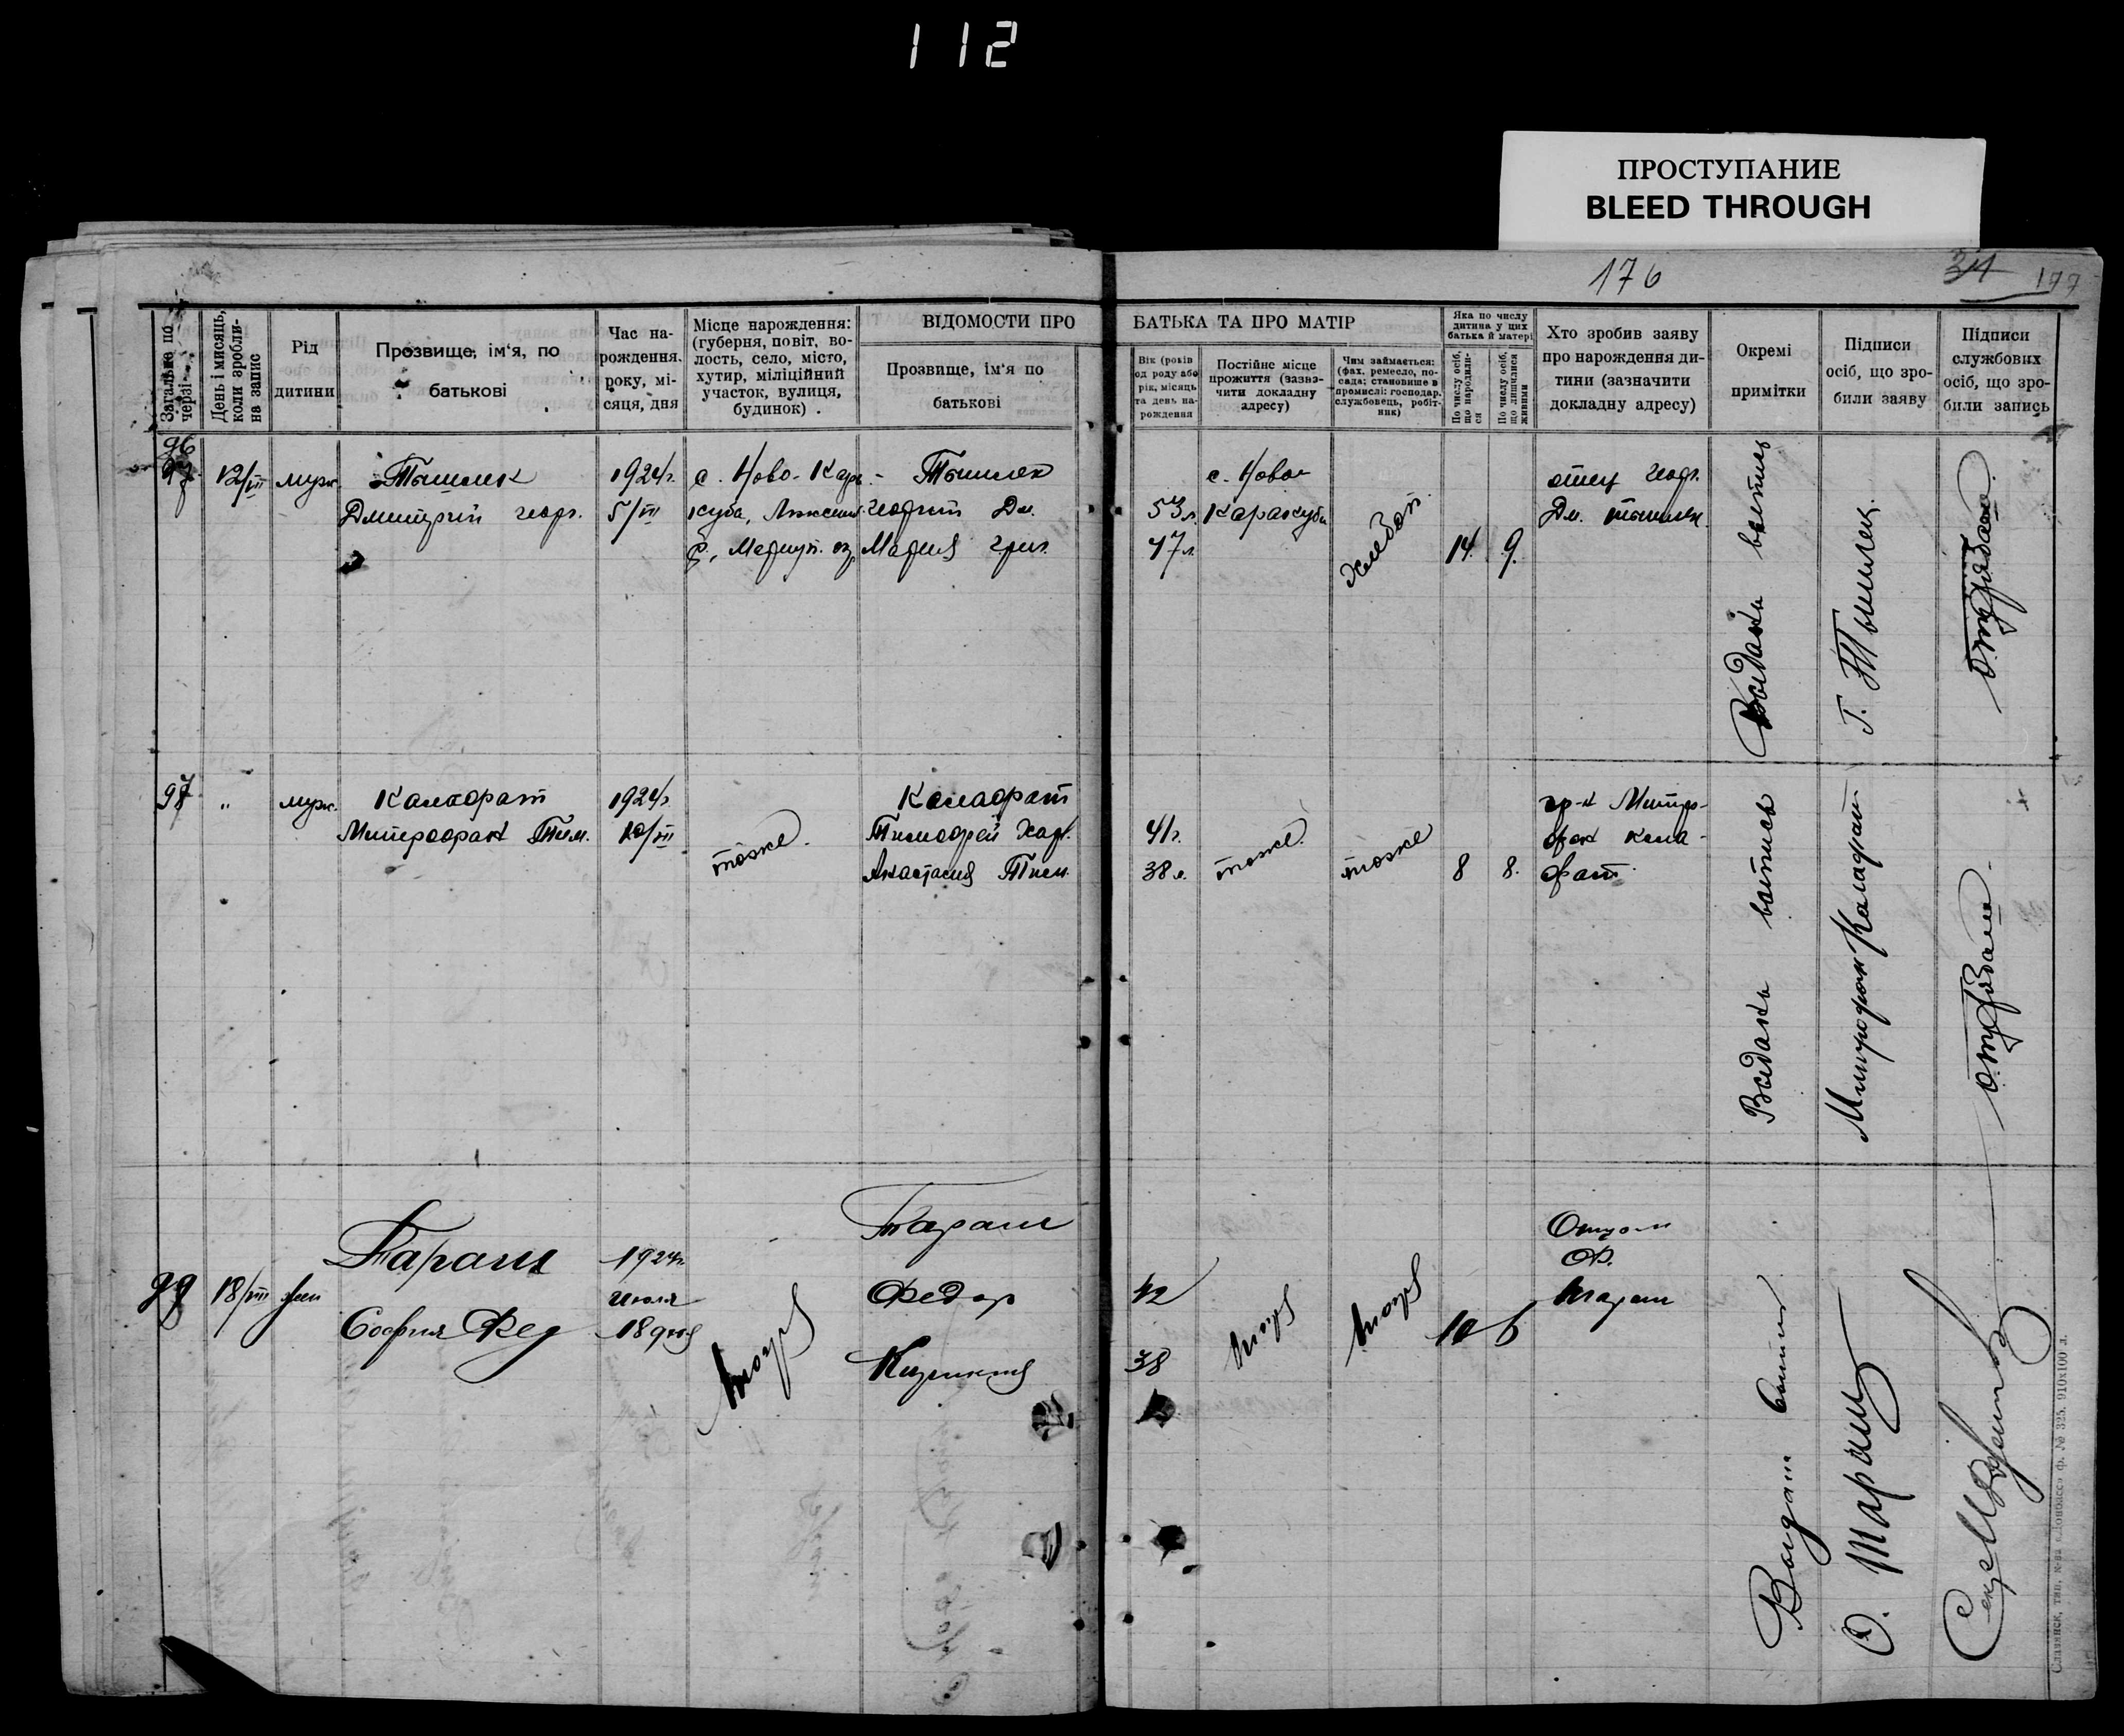 112
ПРОСТУПАНИЕ
BLEED THROUGH
176
34
177
Загальне по черзі
День і мисяць, коли зробли- на запис
Рід
дитини
Прозвище, ім'я, по
батькові
Час на-
рождення.
року, мі-
сяця, дня
Місце нарождення:
(губерня, повіт, во-
лость, село, місто,
хутир, міліційний
участок, вулиця,
будинок)
ВІДОМОСТИ ПРО
Прозвище, ім'я по
батькові
БАТЬКА ТА ПРО МАТІР
Вік (років
од роду або
рік, місяць
та день на-
рождення
Постійне місце
прожиття (зазна-
чити докладну
адресу)
Чим займається:
(фах, ремесло, по-
сада; становише в
промислі: господар,
службовець, робіт-
ник)
Яка по числу
дитина у цих
батька й матері
По числу осіб,
що народили-
ся
По числу осіб,
що лишилися
живими
Хто зробив заяву
про нарождення ди-
тини (зазначити
докладну адресу)
Окремі
примітки
Підписи
осіб, що зро-
били заяву
Підписи
службових
осіб, що зро-
били запись
96
12/VII
муж.
Тышлек
Дмитрий Георг.
1924г.
5/VII
с. Ново-Кара-
куба,
Мариуп.
Тышлек
Георгий Дм.
Мария Григ.
53л.
47л.
с. Ново-
Каракуба
Хлебоп.
14
9.
отец Георг.
Дм. Тышлек.
Выдана выпись
Г. Тышлек
97
"
муж.
Калафат
Митрофан Тим.
1924г.
10/VII
тоже.
Калафат
Тимофей Хар.
Анастасия Тим.
41г.
38л.
тоже.
тоже
8
8.
гр-н Митро-
фан Кала-
фат
Выдана выпись
Митрофан Калафат
99
18/VIII
жен
Тараш
София Фед
1924г.
июля
18 дня
Тараш
Федор
42
38
10
6
Ф.
Тараш
Ф. Тараш
Славянск, тип.
№ 325. 910х100 л.